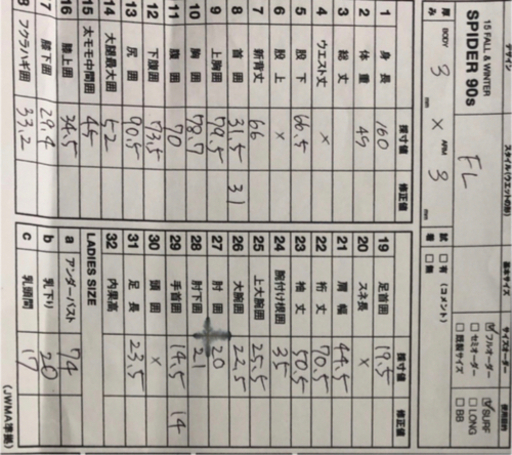 デザイン
15 FALL & WINTER
SPIDER 90s
スタイル(ウエットの形)
FL
基本サイズ
サイズオーダー
☑フルオーダー
□セミオーダー
□既製サイズ
使用目的
☑SURF
□LONG
□BB
厚み
BODY 3 mm × ARM 3 mm
試着 □有 (コメント)
□無
採寸値 修正値
1 身長 160
2 体重 45
3 総丈
4 ウエスト丈 ×
5 股下 66.5
6 股上 ×
7 新背丈 66
8 首囲 31.5 31
9 上胸囲 79.5
10 胸囲 78.7
11 腹囲 70
12 下腹囲 73.5
13 尻囲 90.5
14 大腿最大囲 52
15 太モモ中間囲 45
16 膝上囲 34.5
17 膝下囲 29.4
8 フクラハギ囲 33.2
採寸値 修正値
19 足首囲 19.5
20 スネ長 ×
21 肩幅 44.5
22 裄丈 70.5
23 袖丈 50.5
24 腕付け根囲 35
25 上大腕囲 25.5
26 大腕囲 22.5
27 肘囲 20
28 肘下囲 21
29 手首囲 14.5 14
30 頭囲 ×
31 足長 23.5
32 内果高
LADIES SIZE
a アンダーバスト 74
b 乳下り 20
c 乳頭間 17
(JWMA準拠)